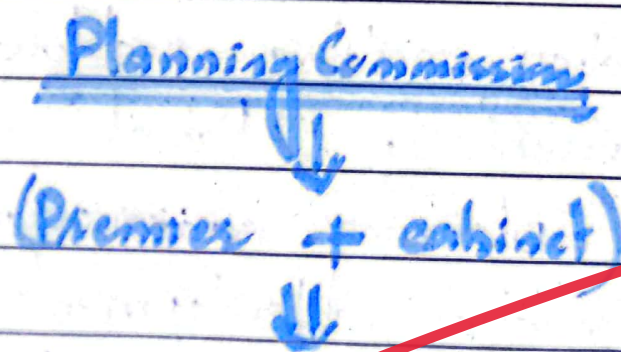 Planning Commission
↓
(Premier + cabinet)
⇓